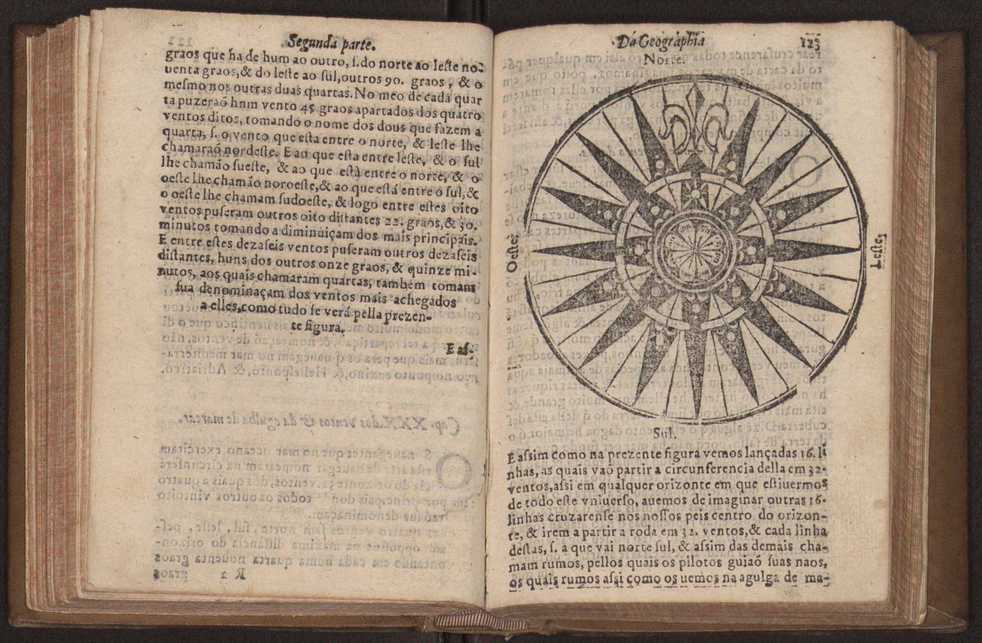 Segunda parte.
graos que ha de hum ao outro, s. do norte ao leste no-
uenta graos, & do leste ao sul, outros 90. graos, & o
mesmo nos outras duas quartas. No meo de cada quar
ta puzeraõ hnm vento 45 graos apartados dos quatro
ventos ditos, tomando o nome dos dous que fazem a
quarta, s. o vento que esta entre o norte, & leste lhe
chamaraõ nordeste. E ao que esta entre leste, & o sul
lhe chamão sueste, & ao que està entre o norte, & o
oeste lhe chamão noroeste, & ao que está entre o sul, &
o oeste lhe chamam sudoeste, & logo entre estes oito
ventos puseram outros oito distantes 22. graos, & 30.
minutos tomando a diminuiçam dos mais principais.
E entre estes dezaseis ventos puseram outros dezaseis
distantes, huns dos outros onze graos, & quinze mi-
nutos, aos quais chamaram quartas, tambem tomam
sua denominaçam dos ventos mais achegados
a elles, como tudo se verà pella prezen-
te figura.
E as-
Da Geographia
123
Norte.
Oeste.
Leste.
Sul.
E assim como na prezente figura vemos lançadas 16. li
nhas, as quais vaõ partir a circunferencia della em 32.
ventos, assi em qualquer orizonte em que estiuermos
de todo este vniuerso, auemos de imaginar outras 16.
linhas cruzarense nos nossos peis centro do orizon-
te, & irem a partir a roda em 32. ventos, & cada linha
destas, s. a que vai norte sul, & assim das demais cha-
mam rumos, pellos quais os pilotos guiaõ suas naos,
os quais rumos assi como os uemos na agulga de ma-